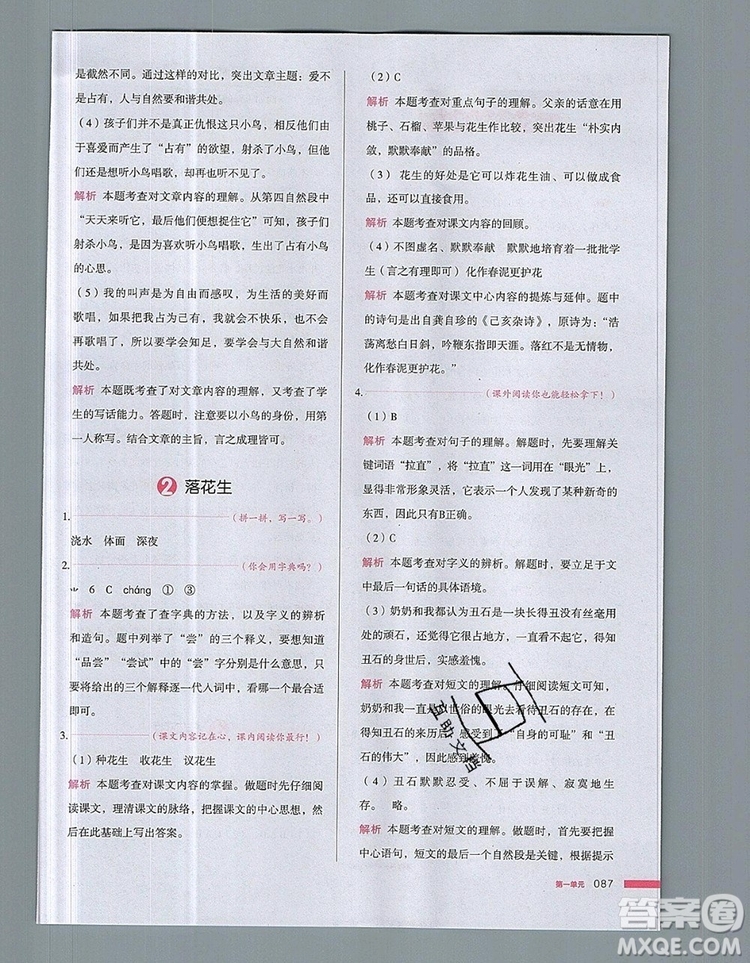 是截然不同。通过这样的对比，突出文章主题：爱不
是占有，人与自然要和谐共处。
（4）孩子们并不是真正仇恨这只小鸟，往往是由
于喜爱而产生了“占有”的欲望，射杀了小鸟，结果
是想听小鸟唱歌，却再也听不见了。
解析 本题考查对文章内容的理解。从第四自然段中
“天天来听它，最后他们便想捉住它”可知，孩子们
射杀小鸟，是因为喜欢听小鸟唱歌，生出了占有小鸟
的心思。
（5）我的叫声是为自由而感叹，为生活的美好而
歌唱，如果我被占为己有，我就会不快乐，也不会
再歌唱了，所以要学会知足，要学会与大自然和谐
共处。
解析 本题既考查了对文章内容的理解，又考查了学
生的写话能力。答题时，注意要以小鸟的身份，用第
一人称写。结合文章的主旨，言之成理皆可。
2 落花生
1.（拼一拼，写一写。）
浇水 体面 深夜
2.（你会用字典吗？）
⺌ 6 C cháng ① ③
解析 本题考查了查字典的方法，以及字义的辨析
和造句。题中列举了“尝”的三个释义，要想清楚
“品尝”“尝试”中的“尝”字分别是什么意思，只
要将给出的三个解释逐一代入词中，就能得出答案。
即可。
3.（课文内容记在心，课内阅读你最行！）
（1）种花生 收花生 议花生
解析 本题考查对课文内容的掌握。做题时先仔细阅
读课文，理清课文的脉络，把握课文的中心思想，然
后在此基础上写出答案。
（2）C
解析 本题考查对重点句子的理解。父亲的话意在用
桃子、石榴、苹果与花生作比较，突出花生“朴实内
敛，默默奉献”的品格。
（3）花生的好处是它可以炸花生油、可以做成食
品，还可以直接食用。
解析 本题考查对课文内容的回顾。
（4）不图虚名、默默奉献 默默地培育着一批批学
生（言之有理即可） 化作春泥更护花
解析 本题考查对课文中心内容的提炼与延伸。题中
的诗句是出自龚自珍的《己亥杂诗》，原诗为：“浩
荡离愁白日斜，吟鞭东指即天涯。落红不是无情物，
化作春泥更护花。”
4.（课外阅读你也能轻松拿下！）
（1）B
解析 本题考查对句子的理解。解题时，先要理解关
键词语“拉直”，将“拉直”这一词用在“眼光”上，
显得非常形象灵活，表现出一个人发现了某种新奇的
东西，因此只有B正确。
（2）C
解析 本题考查对字义的辨析。解题时，要立足于文
中最后一句话的具体语境。
（3）奶奶和我都认为丑石是一块长得丑没有丝毫用
处的顽石，还觉得它很占地方，一直看不惯它，当
丑石的身世后，实感羞愧。
解析 本题考查对短文的理解。仔细阅读短文可知，
奶奶和我一直以世俗的眼光去看待丑石的，当知道了
丑石的来历后，才感到了“自身的可耻”和“丑
石的伟大”，由此感到羞愧。
（4）丑石默默忍受、不屈于误解、寂寞地生
存。 略。
解析 本题考查对短文的理解。做题时，首先要把握
中心语句，短文的最后一个自然段是关键，根据提示
第一单元 087
互助文档
答案圈
MXQE.COM